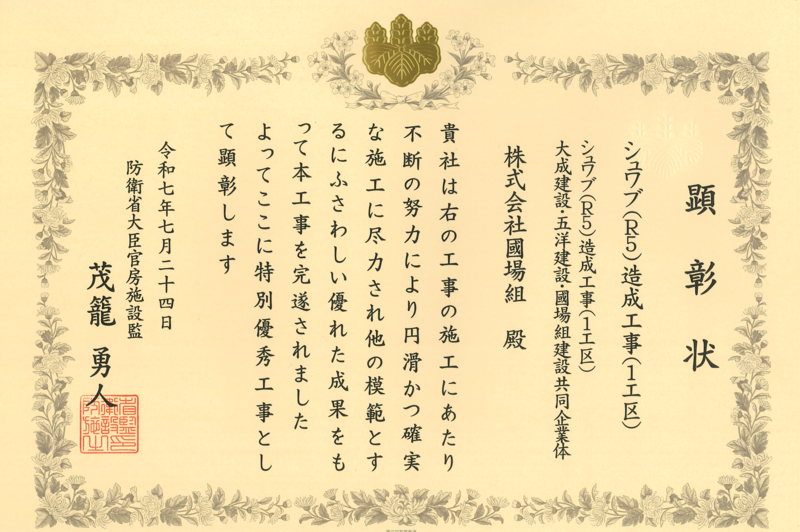 顕彰状
シュワブ(R5)造成工事(1工区)
シュワブ(R5)造成工事(1工区)
大成建設・五洋建設・國場組建設共同企業体
株式会社國場組 殿
貴社は右の工事の施工にあたり
不断の努力により円滑かつ確実
な施工に尽力され他の模範とす
るにふさわしい優れた成果をも
って本工事を完遂されました
よってここに特別優秀工事とし
て顕彰します
令和七年七月二十四日
防衛省大臣官房施設監
茂籠 勇人